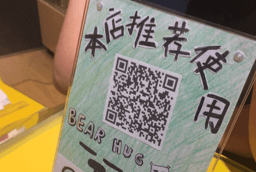 本店推荐使用
BEAR HUG